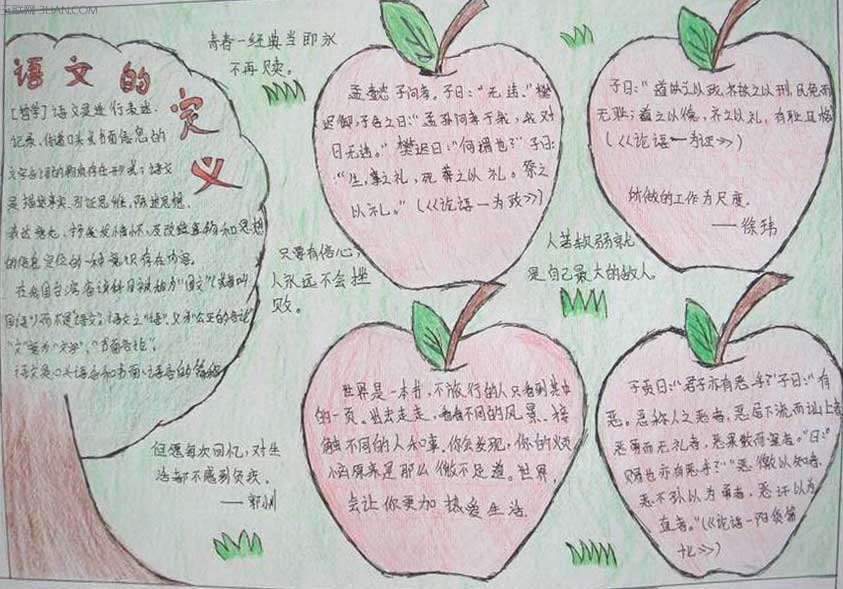 互联网 3LIAN.COM
语文的
定
义
[哲学]语文是进行表述、
记录、传递口头或书面信息的
文字言词的物质存在形式；语文
是描述事实、引证思维、陈述思想、
在我国台湾省该科目被称为"国文"(
"文"
语文是口头语言和书面语言的简称
青春一经典当即永
不再赎。
孟懿子问孝。子曰："无违。"樊
迟御，子告之曰："孟孙问孝于我，我对
曰无违。"樊迟曰："何谓也？"子曰：
"生，事之以礼，死葬之以礼。祭之
以礼。"(《论语一为政》)
子曰："道之以政，齐之以刑，民免而
无耻；道之以德，齐之以礼，有耻且格
(《论语一为证》)
所做的工作为尺度。
——徐玮
只要有信心，
人永远不会挫
败。
人若软弱就
是自己最大的敌人。
但愿每次回忆，对生
活都不感到负疚。
——郭小川
世界是一本书，不旅行的人只看到其中
的一页。出去走走，看看不同的风景、接
触不同的人和事。你会发现，你的烦
恼原来是那么微不足道。世界，
会让你更加热爱生活
子贡曰："君子亦有恶乎？"子曰："有
恶。恶称人之恶者，恶居下流而讪上者
恶勇而无礼者，恶果敢而窒者。"曰：
赐也亦有恶乎？""恶徼以知者，
恶不孙以为勇者，恶讦以为
直者。"(《论语一阳货第
十七》)